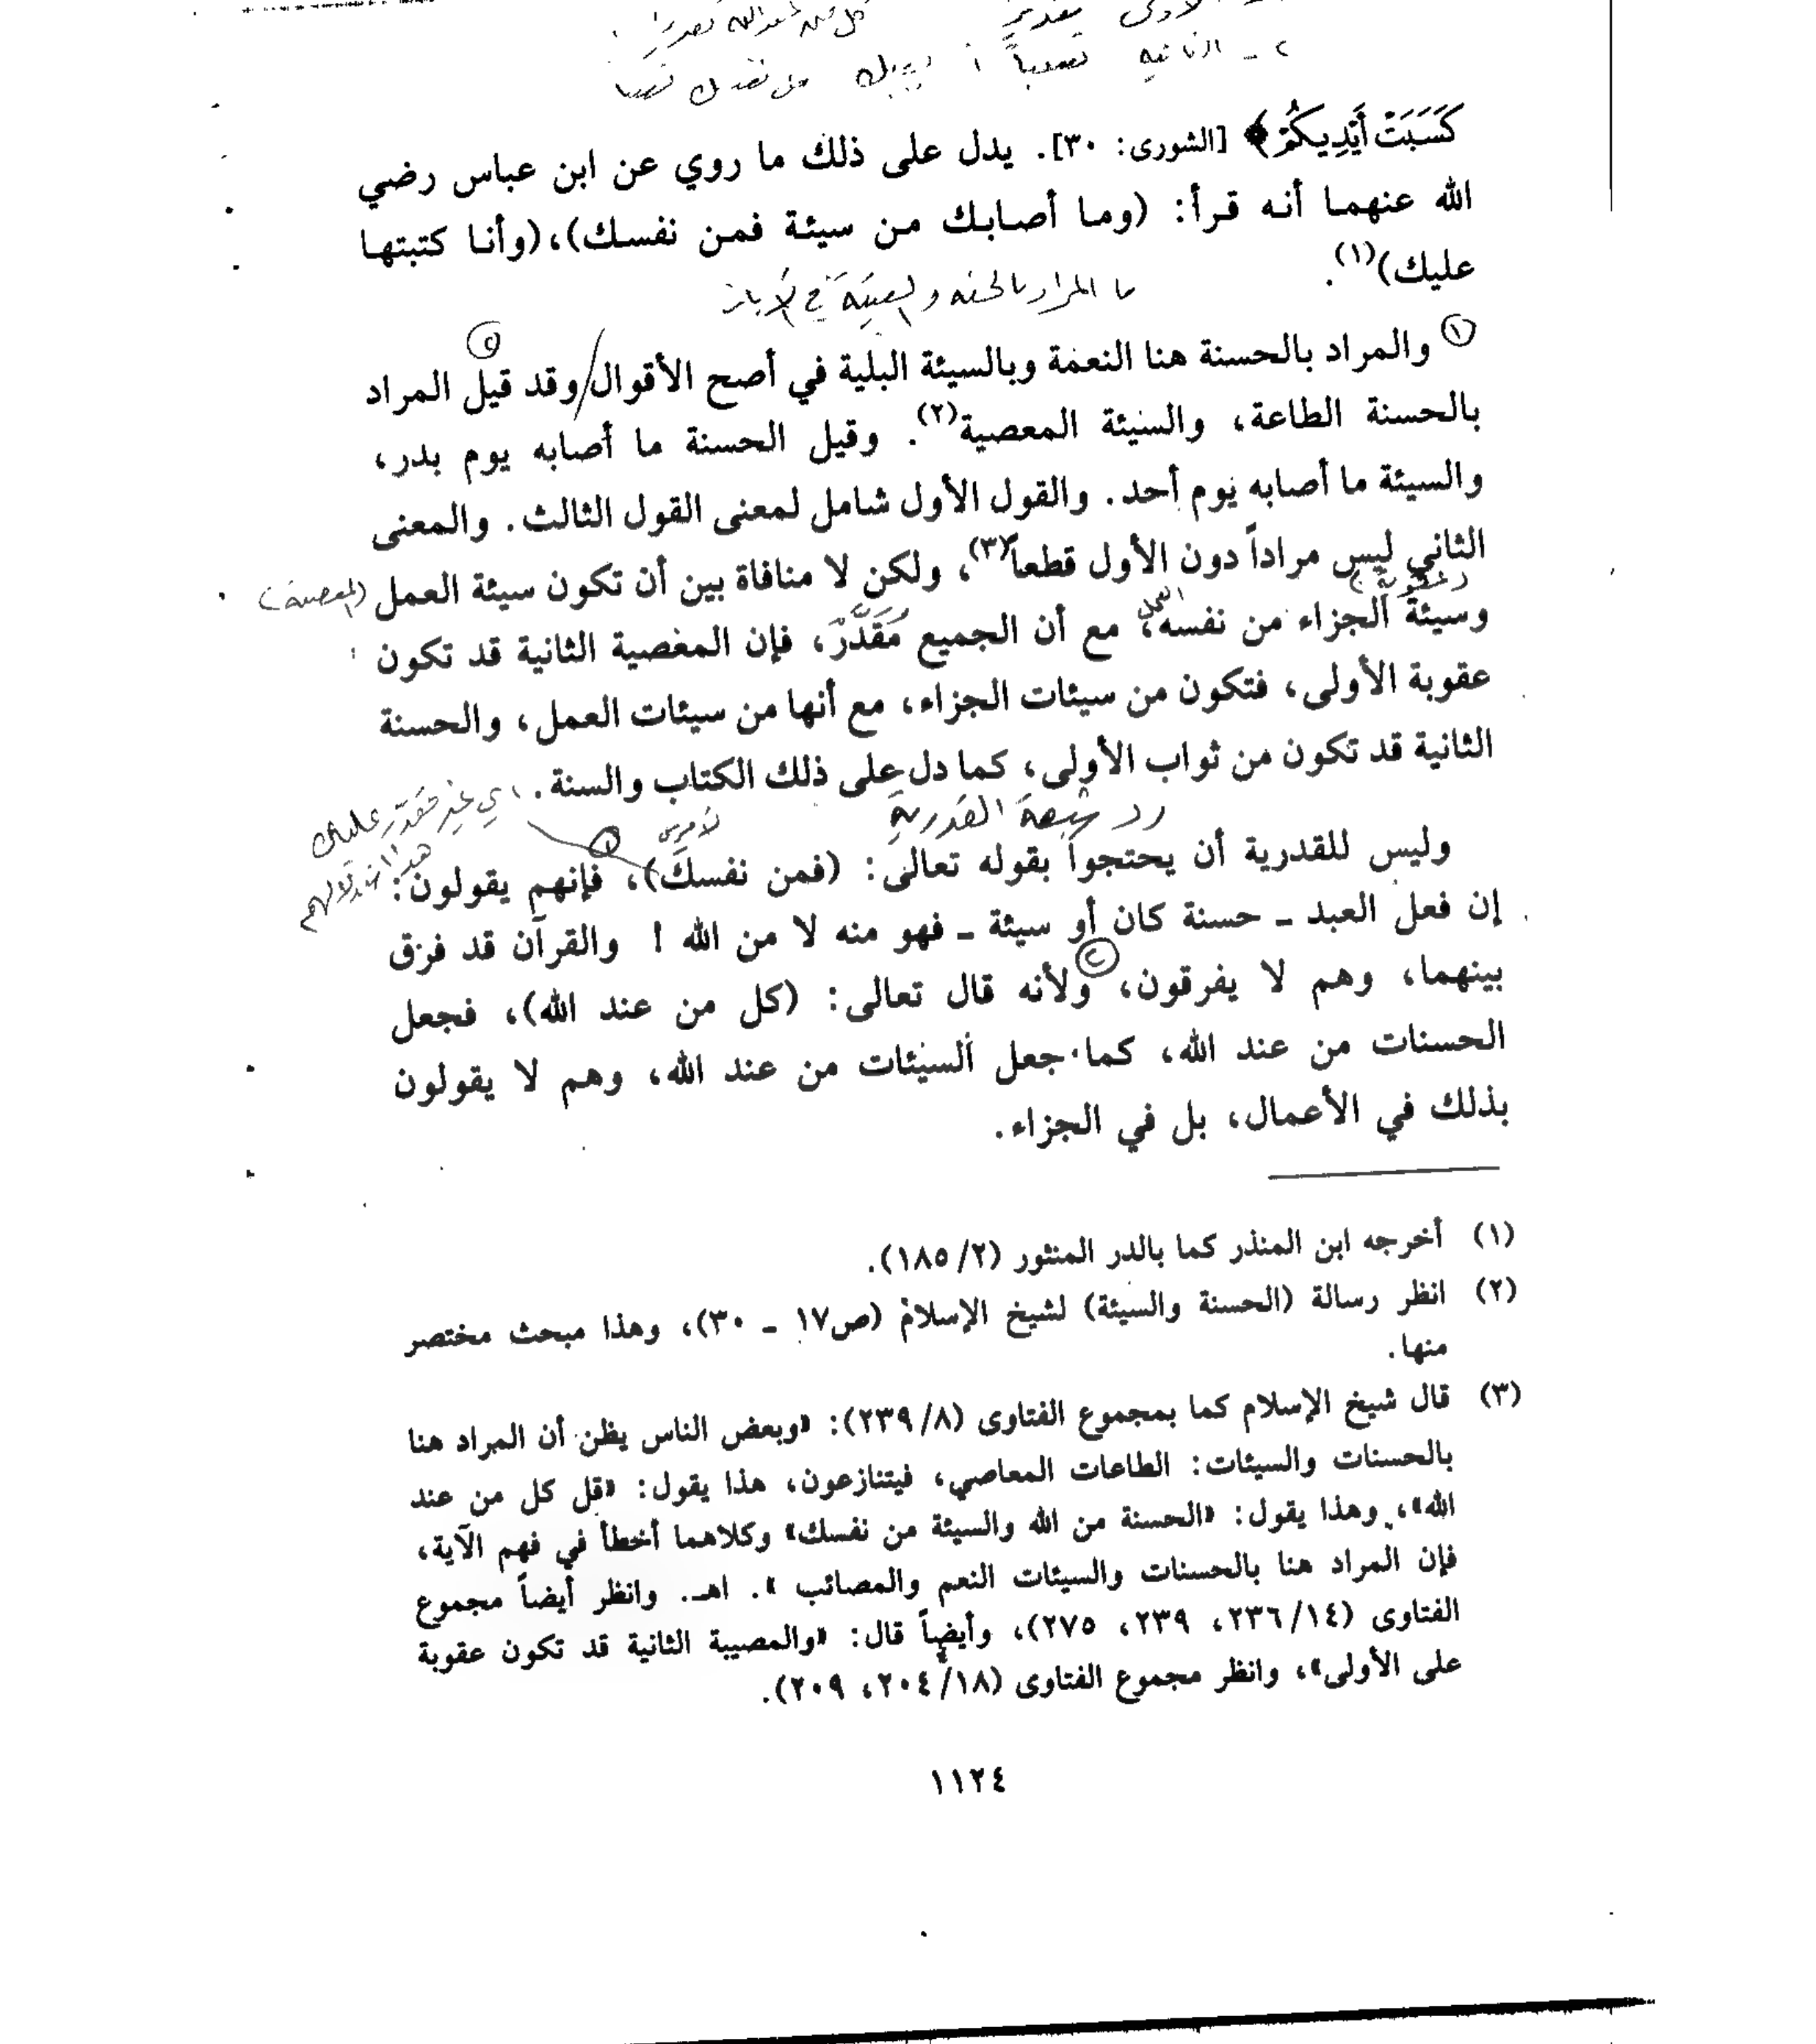 ٢ - الثانية تسبباً من نفسك تسببا
كَسَبَتْ أَيْدِيكُمْ﴾ [الشورى: ٣٠]. يدل على ذلك ما روي عن ابن عباس رضي
الله عنهما أنه قرأ: (وما أصابك من سيئة فمن نفسك)،(وأنا كتبتها
عليك)(١).
ما المراد بالحسنة والسيئة في الآيات
(١) والمراد بالحسنة هنا النعمة وبالسيئة البلية في أصح الأقوال/وقد قيل المراد
بالحسنة الطاعة، والسيئة المعصية(٢). وقيل الحسنة ما أصابه يوم بدر،
والسيئة ما أصابه يوم أحد. والقول الأول شامل لمعنى القول الثالث. والمعنى
الثاني ليس مراداً دون الأول قطعاً(٣)، ولكن لا منافاة بين أن تكون سيئة العمل (المعصية)
وسيئة الجزاء من نفسه، مع أن الجميع مُقَدَّرٌ، فإن المعصية الثانية قد تكون
عقوبة الأولى، فتكون من سيئات الجزاء، مع أنها من سيئات العمل، والحسنة
الثانية قد تكون من ثواب الأولى، كما دل على ذلك الكتاب والسنة.
أي غير مقدر عليك
هذا استدلالهم
رد شبهة القدرية
وليس للقدرية أن يحتجوا بقوله تعالى: (فمن نفسك)، فإنهم يقولون:
إن فعل العبد ـ حسنة كان أو سيئة ـ فهو منه لا من الله ! والقرآن قد فرق
بينهما، وهم لا يفرقون، ولأنه قال تعالى: (كل من عند الله)، فجعل
الحسنات من عند الله، كما جعل السيئات من عند الله، وهم لا يقولون
بذلك في الأعمال، بل في الجزاء.
(١) أخرجه ابن المنذر كما بالدر المنثور (٢/ ١٨٥).
(٢) انظر رسالة (الحسنة والسيئة) لشيخ الإسلام (ص١٧ ـ ٣٠)، وهذا مبحث مختصر
منها.
(٣) قال شيخ الإسلام كما بمجموع الفتاوى (٨/ ٢٣٩): «وبعض الناس يظن أن المراد هنا
بالحسنات والسيئات: الطاعات المعاصي، فيتنازعون، هذا يقول: «قل كل من عند
الله»، وهذا يقول: «الحسنة من الله والسيئة من نفسك» وكلاهما أخطأ في فهم الآية،
فإن المراد هنا بالحسنات والسيئات النعم والمصائب ». اهـ. وانظر أيضاً مجموع
الفتاوى (١٤/ ٢٣٦، ٢٣٩، ٢٧٥)، وأيضاً قال: «والمصيبة الثانية قد تكون عقوبة
على الأولى»، وانظر مجموع الفتاوى (١٨/ ٢٠٤، ٢٠٩).
١١٢٤